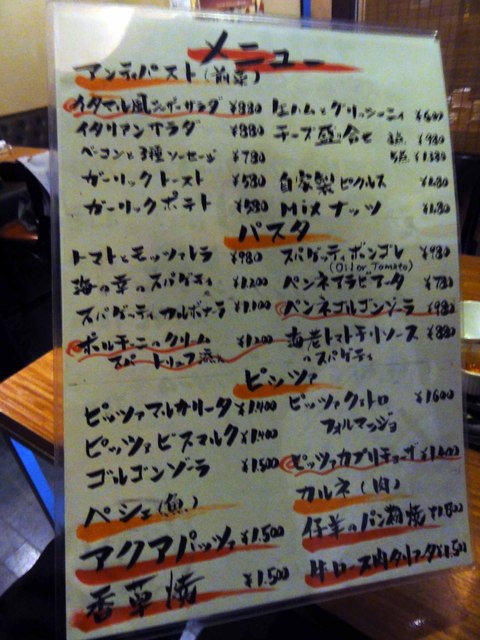 メニュー
アンティパスト(前菜)
シーザーサラダ ¥880
イタリアンサラダ ¥880
ベーコンと3種ソーセージ ¥780
ガーリックトースト ¥580
ガーリックポテト ¥580
生ハムとグリッシーニ ¥600
チーズ盛り合せ 3点 ¥980
5点 ¥1380
自家製ピクルス
Mixナッツ
パスタ
トマトとモッツァレラ ¥980
海の幸のスパゲティ ¥1,200
スパゲッティカルボナーラ ¥1,100
ポルチーニのクリーム ¥1,200
スパゲッティボンゴレ ¥980
(Oil or Tomato)
ペンネアラビアータ ¥780
ペンネゴルゴンゾーラ ¥980
海老トマトチリソース ¥880
のスパゲティ
ピッツァ
ピッツァマルガリータ ¥1,400
ピッツァビスマルク ¥1,400
ゴルゴンゾーラ ¥1,500
ピッツァクアトロ ¥1600
フォルマッジョ
ピッツァカプリチョーザ ¥1,400
ペシェ(魚)
アクアパッツァ ¥1,500
香草焼 ¥1,500
カルネ(肉)
仔羊のパン粉焼 ¥1,800
牛ロース肉タリアータ ¥1,500